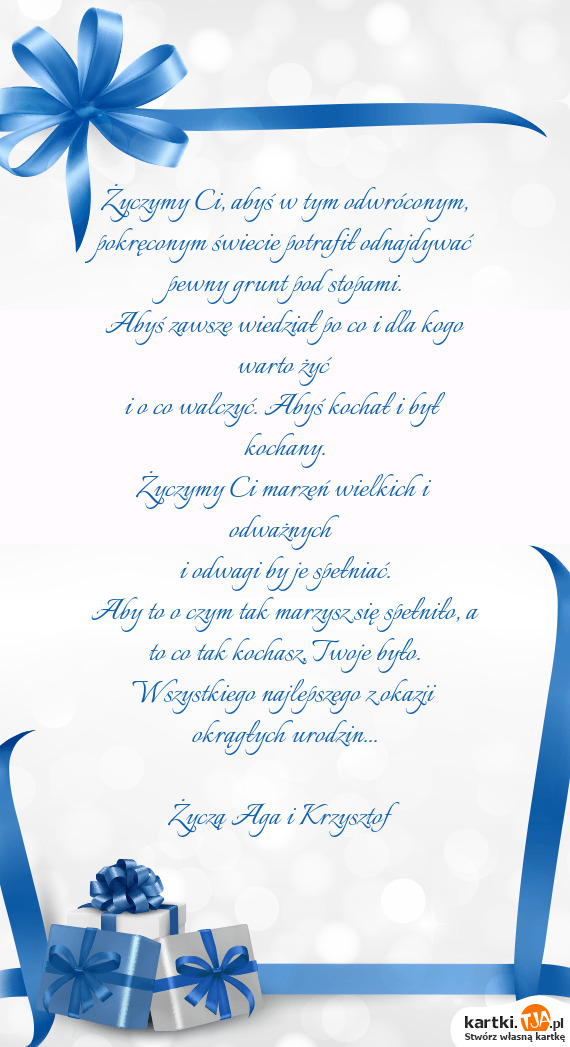 Życzymy Ci, abyś w tym odwróconym,
pokręconym świecie potrafił odnajdywać
pewny grunt pod stopami.
Abyś zawsze wiedział po co i dla kogo
warto żyć
i o co walczyć. Abyś kochał i był
kochany.
Życzymy Ci marzeń wielkich i
odważnych
i odwagi by je spełniać.
Aby to o czym tak marzysz się spełniło, a
to co tak kochasz, Twoje było.
Wszystkiego najlepszego z okazji
okrągłych urodzin...
Życzą Aga i Krzysztof
kartki.TJA.pl
Stwórz własną kartkę